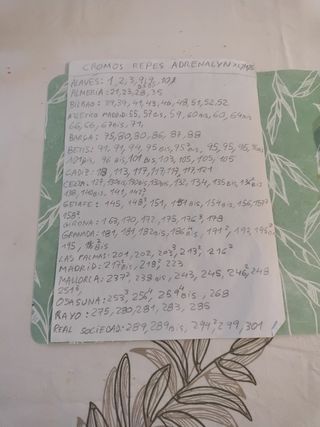 CROMOS REPES ADRENALYN
ALAVES: 1, 2, 3, 9, 9,
ALMERIA: 21, 23, 28, 35
BILBAO: 39, 41, 43, 48, 51, 52, 52
ATLETICO MADRID: 55, 57BIS, 59, 60BIS, 60, 64BIS
66, 66, 67BIS, 71,
BARÇA: 75, 80, 80, 86, 87, 88
BETIS: 91, 91, 94, 95BIS, 95, 95, 95,
101BIS, 96 BIS, 101 BIS, 103, 105, 105, 105
CADIZ: 113, 117, 117, 117, 117, 121
CELTA: 127, 132, 134, 135BIS,
138, 140BIS, 141, 147²
GETAFE: 145, 148², 151, 151BIS, 154BIS, 156, 157
158²
GIRONA: 163, 170, 172, 175, 176³, 178
GRANADA: 181, 181, 182BIS, 186BIS, 191², 192, 195
LAS PALMAS: 201, 202, 203³, 213², 216²
MADRID: 217²BIS, 218², 223
MALLORCA: 237², 238BIS, 243, 245, 246², 248
251²,
OSASUNA: 253³, 256⁴, 259⁴BIS, 268
RAYO: 275, 280, 281, 283, 285
REAL SOCIEDAD: 289, 289BIS, 294², 299, 301